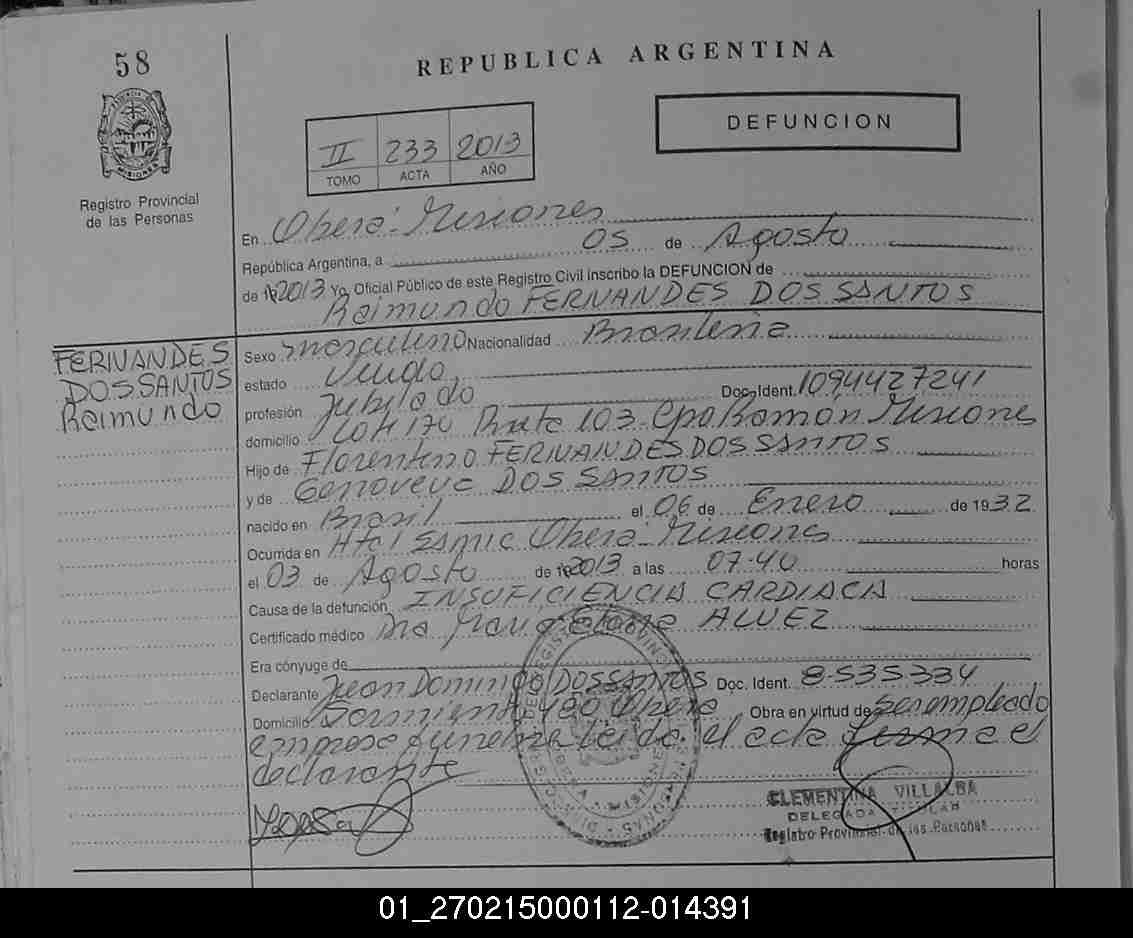 58
REPUBLICA ARGENTINA
DEFUNCION
II 233 2013
TOMO ACTA AÑO
Registro Provincial
de las Personas
MISIONES
En Oberá - Misiones
República Argentina, a 05 de Agosto
de 2013 Yo, Oficial Público de este Registro Civil inscribo la DEFUNCION de
Raimundo FERNANDES DOS SANTOS
FERNANDES
DOS SANTOS
Raimundo
Sexo masculino Nacionalidad Brasilera
estado Viudo
profesión Jubilado Doc. Ident. 1094427241
domicilio Lote 170 Ruta 103 - Cpo Ramón Misiones
Hijo de Florentino FERNANDES DOS SANTOS
y de Genoveva DOS SANTOS
nacido en Brasil el 06 de Enero de 1932
Ocurrida en Htal Samic Oberá - Misiones
el 03 de Agosto de 2013 a las 07-40 horas
Causa de la defunción INSUFICIENCIA CARDIACA
Certificado médico Dra ALVEZ
Era cónyuge de
Declarante Juan Domingo DOS SANTOS Doc. Ident. 8-535334
Domicilio Sarmiento 480 Oberá Obra en virtud de ser empleado
empresa funebre leido el acta firma el
declarante
CLEMENTINA VILLALBA
DELEGADA TITULAR
Registro Provincial de las Personas
01_270215000112-014391